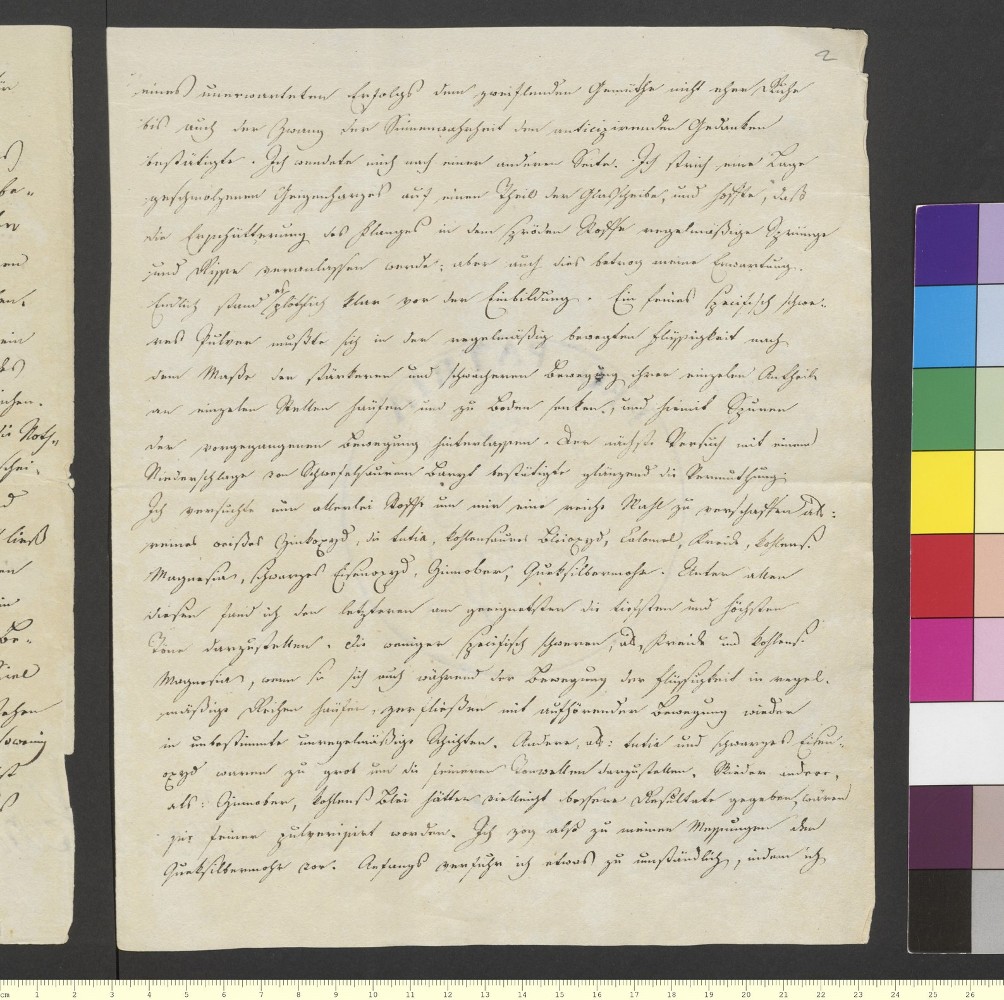 2
eines unerwarteten Erfolgs dem zweiflenden Gemüthe nicht eher Ruhe
bis auch der Zwang der Sinnenwahrheit den anticipirenden Gedanken
bestätigte. Ich wendete mich nach einer anderen Seite. Ich strich eine Lage
geschmolzenen Geigenharzes auf einen Theil der Glasscheibe, und hoffte, daß
die Erschütterung des Klanges in dem spröden Stoffe regelmäßige Sprünge
und Risse veranlassen werde; aber auch dies betrog meine Erwartung.
Endlich stand es plötzlich klar vor der Einbildung. Ein feines specifisch schwe-
res Pulver mußte sich in der regelmäßig bewegten Flüssigkeit nach
dem Maße der stärkeren und schwächeren Bewegung ihrer einzelen Antheile
an einzelen Stellen häufen und zu Boden senken, und hiemit Spuren
der vorgegangenen Bewegung hinterlassen. Der nächste Versuch mit einem
Niederschlage von Schwefelsaurem Baryt bestätigte glänzend die Vermuthung.
Ich versuchte nun allerlei Stoffe um mir eine reiche Wahl zu verschaffen als:
reines weißes Zinkoxyd, die tutia, kohlensaures Bleioxyd, Calomel, Kreide, kohlens.
Magnesia, schwarzes Eisenoxyd, Zinnober, Queksilbermohr. Unter allen
diesen fand ich den letzteren am geeignetsten die tiefsten und höchsten
Töne darzustellen. Die weniger specifisch schweren, als Kreide und kohlens.
Magnesia, wenn sie sich auch während der Bewegung der Flüssigkeit in regel-
mäßige Reihen häufen, zerfließen mit aufhörender Bewegung wieder
in unbestimmte unregelmäßige Schichten. Andere, als: tutia und schwarzes Eisen-
oxyd waren zu grob um die feineren Tonwellen darzustellen. Wieder andere,
als: Zinnober, kohlens. Blei hätten vielleicht bessere Resultate gegeben, wären
sie feiner pulverisirt worden. Ich zog also zu meinen Messungen den
Queksilbermohr vor. Anfangs verfuhr ich etwas zu umständlich, indem ich